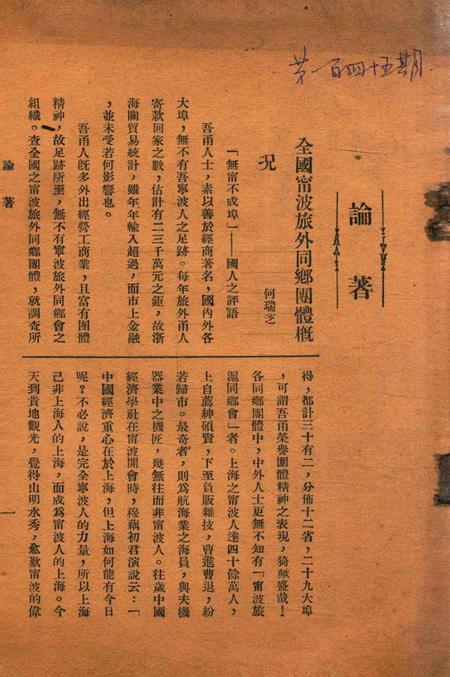 第一百四十五期
論著
全國甯波旅外同鄉團體概
況
何瑞芝
「無甯不成埠」——國人之評語
吾甬人士，素以善於經商著名，國內外各
大埠，無不有吾寧波人之足跡。每年旅外甬人
寄款回家之數，估計有二三千萬元之鉅，故浙
海關貿易統計，雖年年輸入超過，而市上金融
，並未受若何影響也。
吾甬人既多外出經營工商業，且富有團體
精神，故足跡所至，無不有寧波旅外同鄉會之
組織。查全國之甯波旅外同鄉團體，就調查所
得，都計三十有二，分佈十二省，二十九大埠
，可謂吾甬榮譽團體精神之表現，猗歟盛哉！
各同鄉團體中，中外人士更無不知有「甯波旅
滬同鄉會」者。上海之甯波人達四十餘萬人，
上自薦紳碩賢，下至負販雜技，曹進曹退，紛
若歸市。最奇者，則為航海業之海員，與夫機
器業中之機匠，幾無往而非甯波人。往歲中國
經濟學社在甯波開會時，穆藕初君演說云：「
中國經濟重心在於上海，但上海如何能有今日
呢？不必說，是完全寧波人的力量，所以上海
己非上海人的上海，而成為甯波人的上海。今
天到貴地觀光，覺得山明水秀，愈歎甯波的偉
論著
一